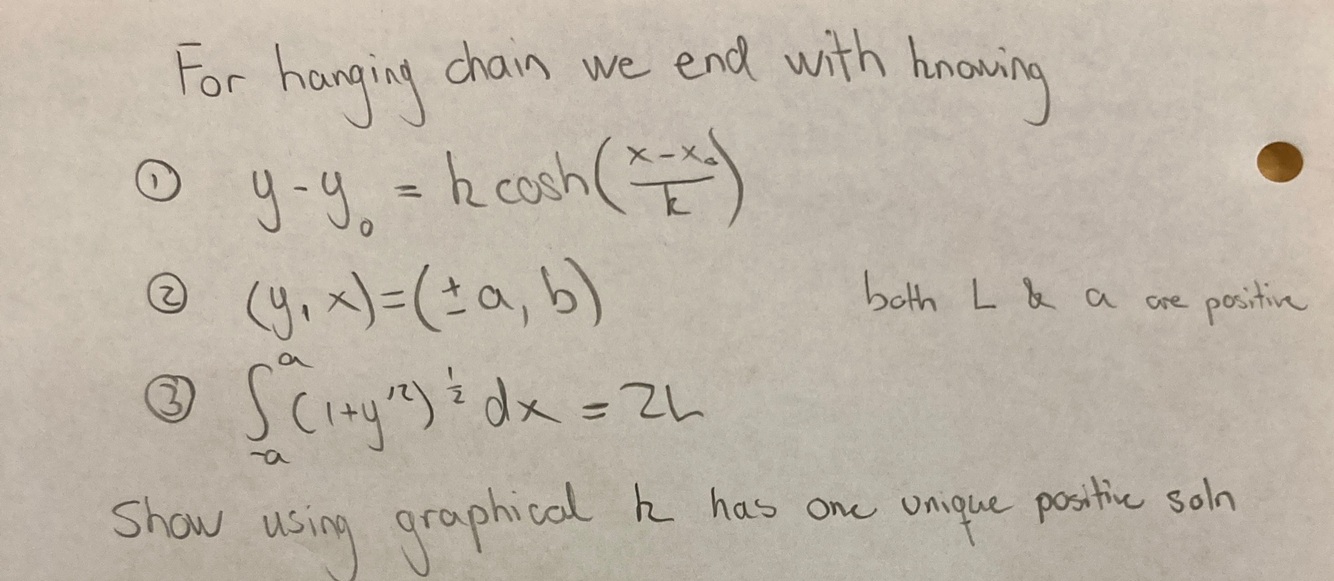 For hanging chain we end with knowing
① y - y₀ = k cosh(x-x₀/k)
② (y, x)=(± a, b)
both L & a are positive
③ ∫₋ₐᵃ (1+y'²)^½ dx = 2L
Show using graphical k has one unique positive soln